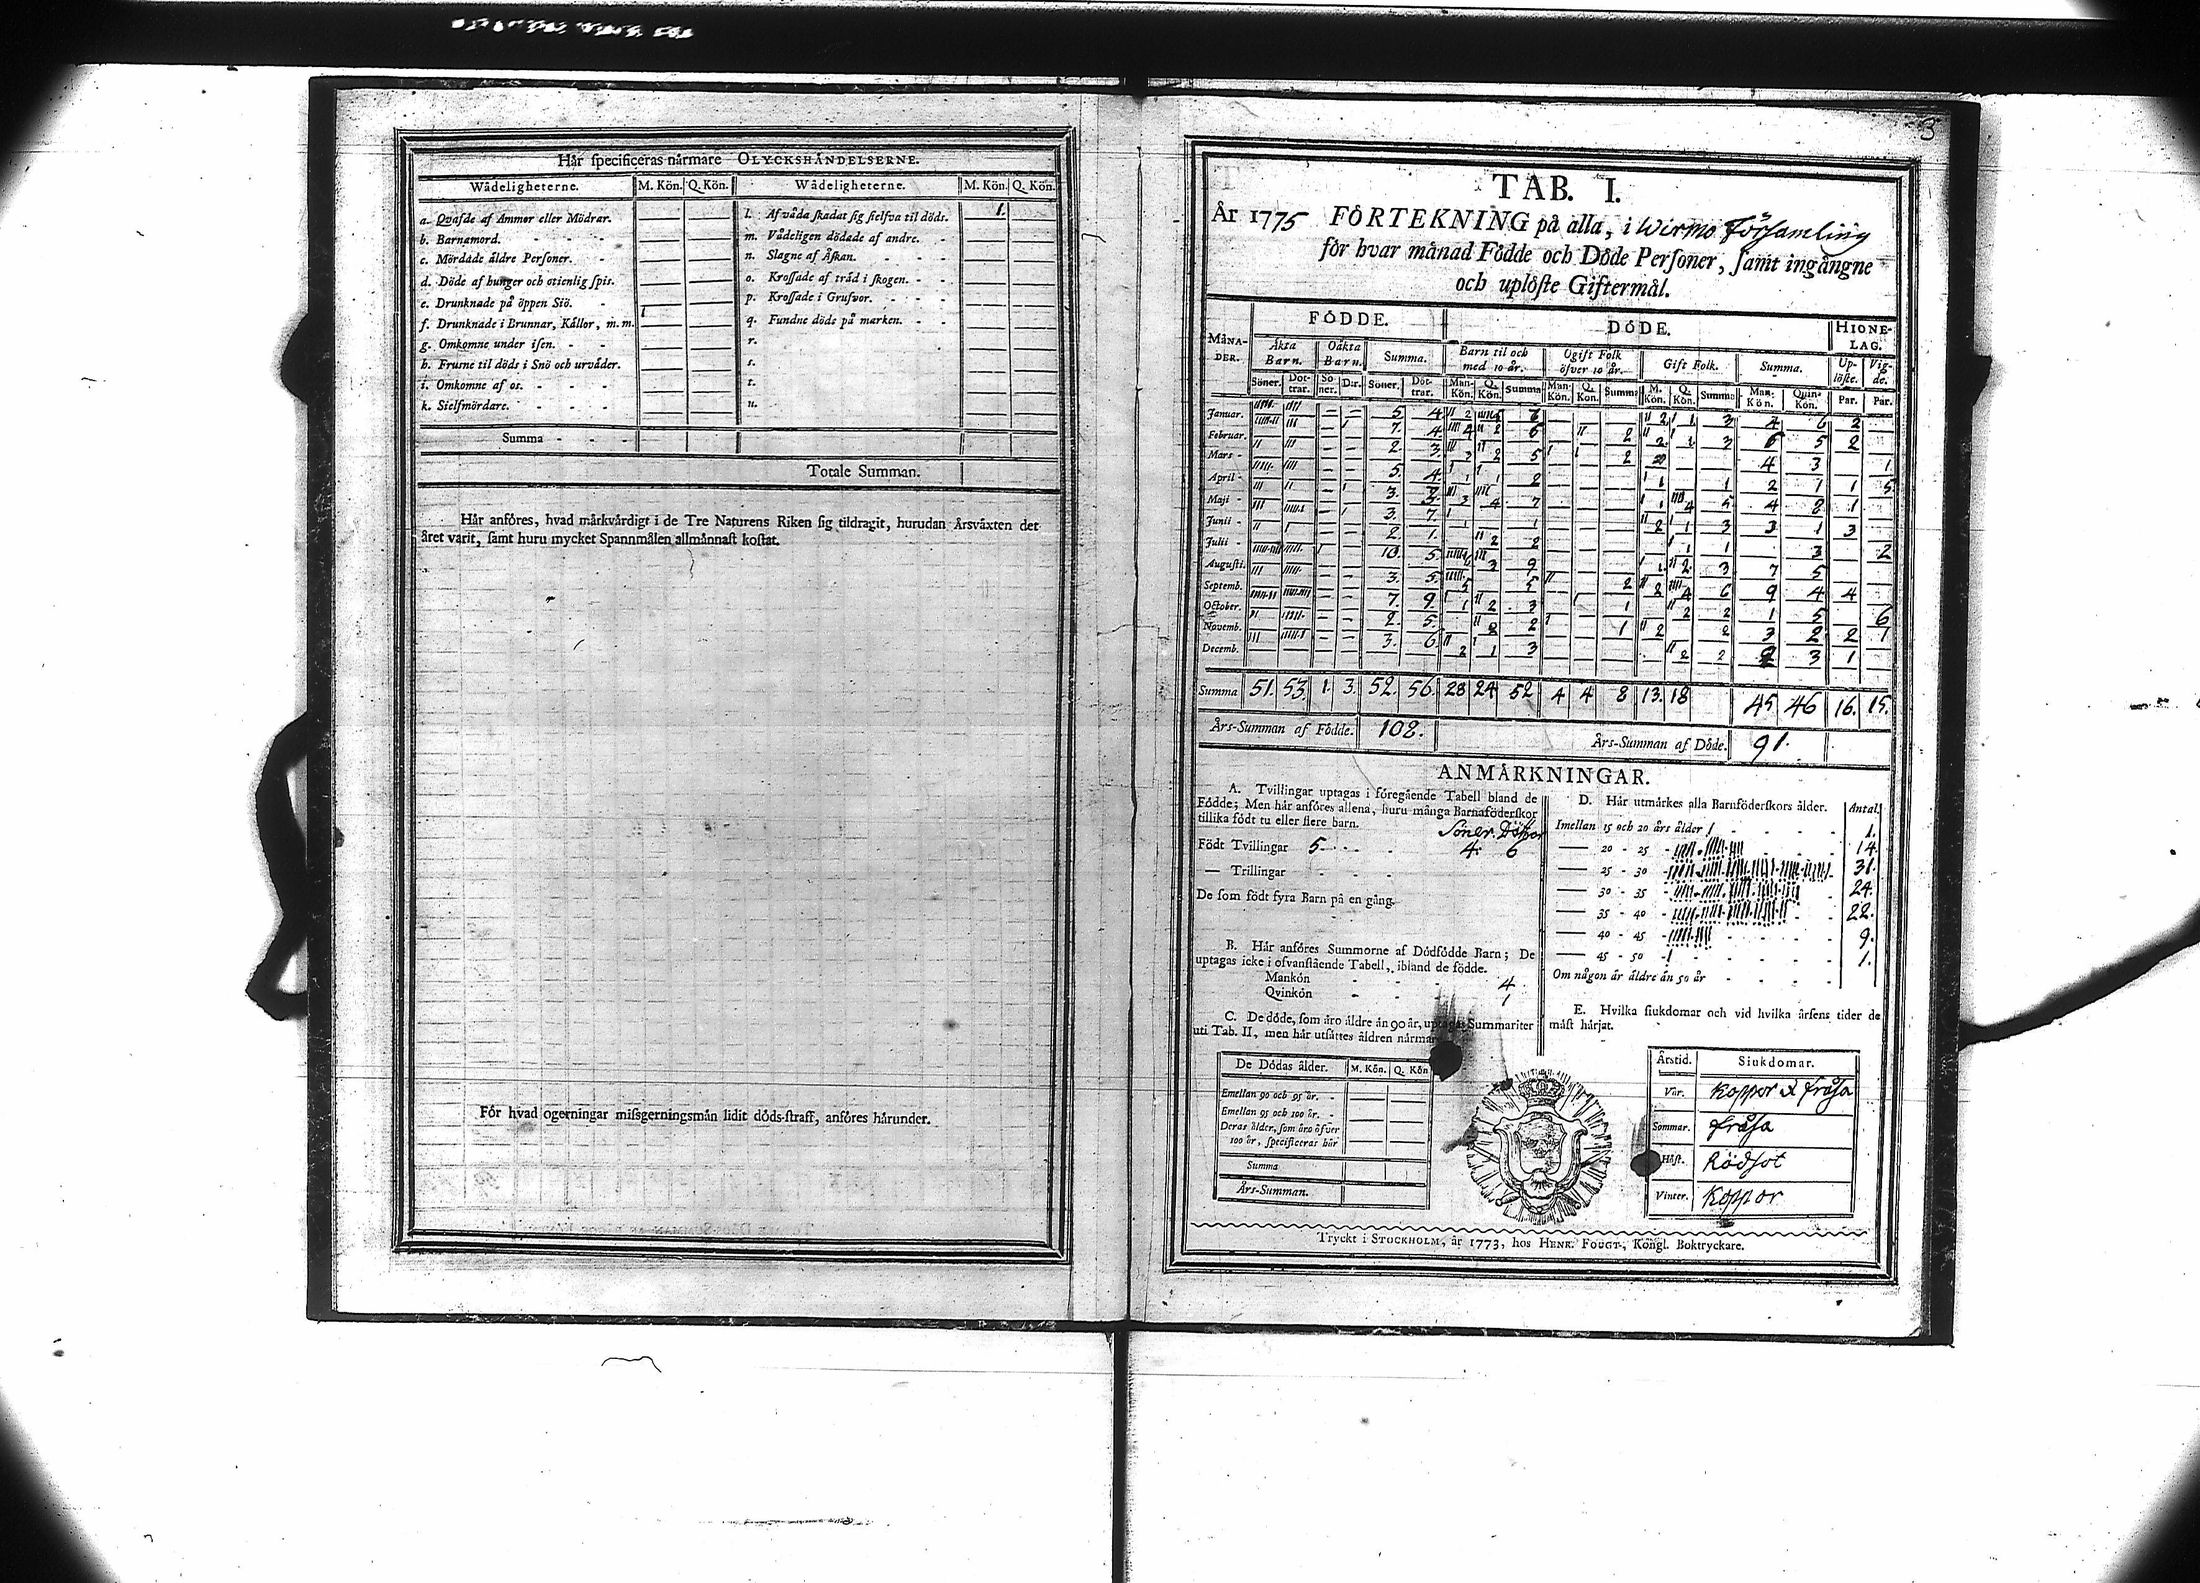 Hår ſpecificeras nårmare OLYCKSHÅNDELSERNE.
Wådeligheterne. M. Kön. Q. Kön. Wådeligheterne. M. Kön. Q. Kön.
a. Qvafde af Ammor eller Mödrar. l. Af våda ſkadat ſig ſielfva til döds. 1.
b. Barnamord. m. Vådeligen dödade af andre.
c. Mördade åldre Perſoner. n. Slagne af Åſkan.
d. Döde af hunger och otienlig ſpis. o. Kroſſade af tråd i ſkogen.
e. Drunknade på öppen Siö. p. Kroſſade i Grufvor.
f. Drunknade i Brunnar, Kållor, m.m. q. Fundne döde på marken.
g. Omkomne under iſen. r.
h. Fruſne til döds i Snö och urvåder. s.
i. Omkomne af os. t.
k. Sielfmördare. u.
Summa
Totale Summan.
Hår anföres, hvad mårkvårdigt i de Tre Naturens Riken ſig tildragit, hurudan Årsvåxten det
året varit, ſamt huru mycket Spannmålen allmånnaſt koſtat.
För hvad ogerningar miſsgerningsmån lidit döds-ſtraff, anföres hårunder.
3
TAB. I.
År 1775 FÖRTEKNING på alla, i Wirmo Församling
för hvar månad Födde och Döde Perſoner, ſamt ingångne
och uplöſte Giftermål.
FÖDDE. DÖDE. HIONE-LAG.
MÅNA-DER. Åkta Barn. Oåkta Barn. Summa. Barn til och med 10 år. Ogift Folk öfver 10 år. Gift Folk. Summa. Up-löſte. Vig-de.
Söner. Döt-trar. Sö-ner. D:r. Söner. Döt-trar. Man-Kön. Q. Kön. Summa Man-Kön. Q. Kön. Summa M. Kön. Q. Kön. Summa Man-Kön. Quin-Kön. Par. Par.
Januar. 5 4
Februar. 7. 4.
Mars 2. 3.
April 5. 4.
Maji 3.
Junii 3. 7.
Julii 2. 1.
Auguſti. 10. 5.
Septemb. 3. 5.
October. 7. 9.
Novemb. 2. 5.
Decemb. 3. 6.
Summa 51. 53. 1. 3. 52. 56. 28 24 52 4 4 8 13. 18 45 46 16. 15.
Års-Summan af Födde. 108. Års-Summan af Döde. 91.
ANMÅRKNINGAR.
A. Tvillingar uptagas i föregående Tabell bland de
Födde; Men hår anföres allena, huru många Barnaföderſkor
tillika födt tu eller flere barn.
Söner. Döttror
Födt Tvillingar 5 4. 6
— Trillingar
De ſom födt fyra Barn på en gång.
B. Hår anföres Summorne af Dödfödde Barn; De
uptagas icke i ofvanſtående Tabell, ibland de födde.
Mankön 4
Qvinkön 1
C. De döde, ſom åro åldre ån 90 år, uptagas Summariter
uti Tab. II, men hår utſåttes åldren nårmare
De Dödas ålder. M. Kön. Q. Kön
Emellan 90 och 95 år.
Emellan 95 och 100 år.
Deras ålder, ſom åro öfver
100 år, ſpecificeras hår
Summa
Års-Summan.
D. Hår utmårkes alla Barnföderſkors ålder. Antal.
Imellan 15 och 20 års ålder 1.
— 20 - 25 14.
— 25 - 30 31.
— 30 - 35 24.
— 35 - 40 22.
— 40 - 45 9.
— 45 - 50 1.
Om någon år åldre ån 50 år
E. Hvilka ſiukdomar och vid hvilka årſens tider de
måſt hårjat.
Årstid. Siukdomar.
Vår. Koppor & fråsa
Sommar. fråsa
Höſt. Rödsot
Vinter. Koppor
Tryckt i STOCKHOLM, år 1773, hos HENR. FOUGT, Kongl. Boktryckare.